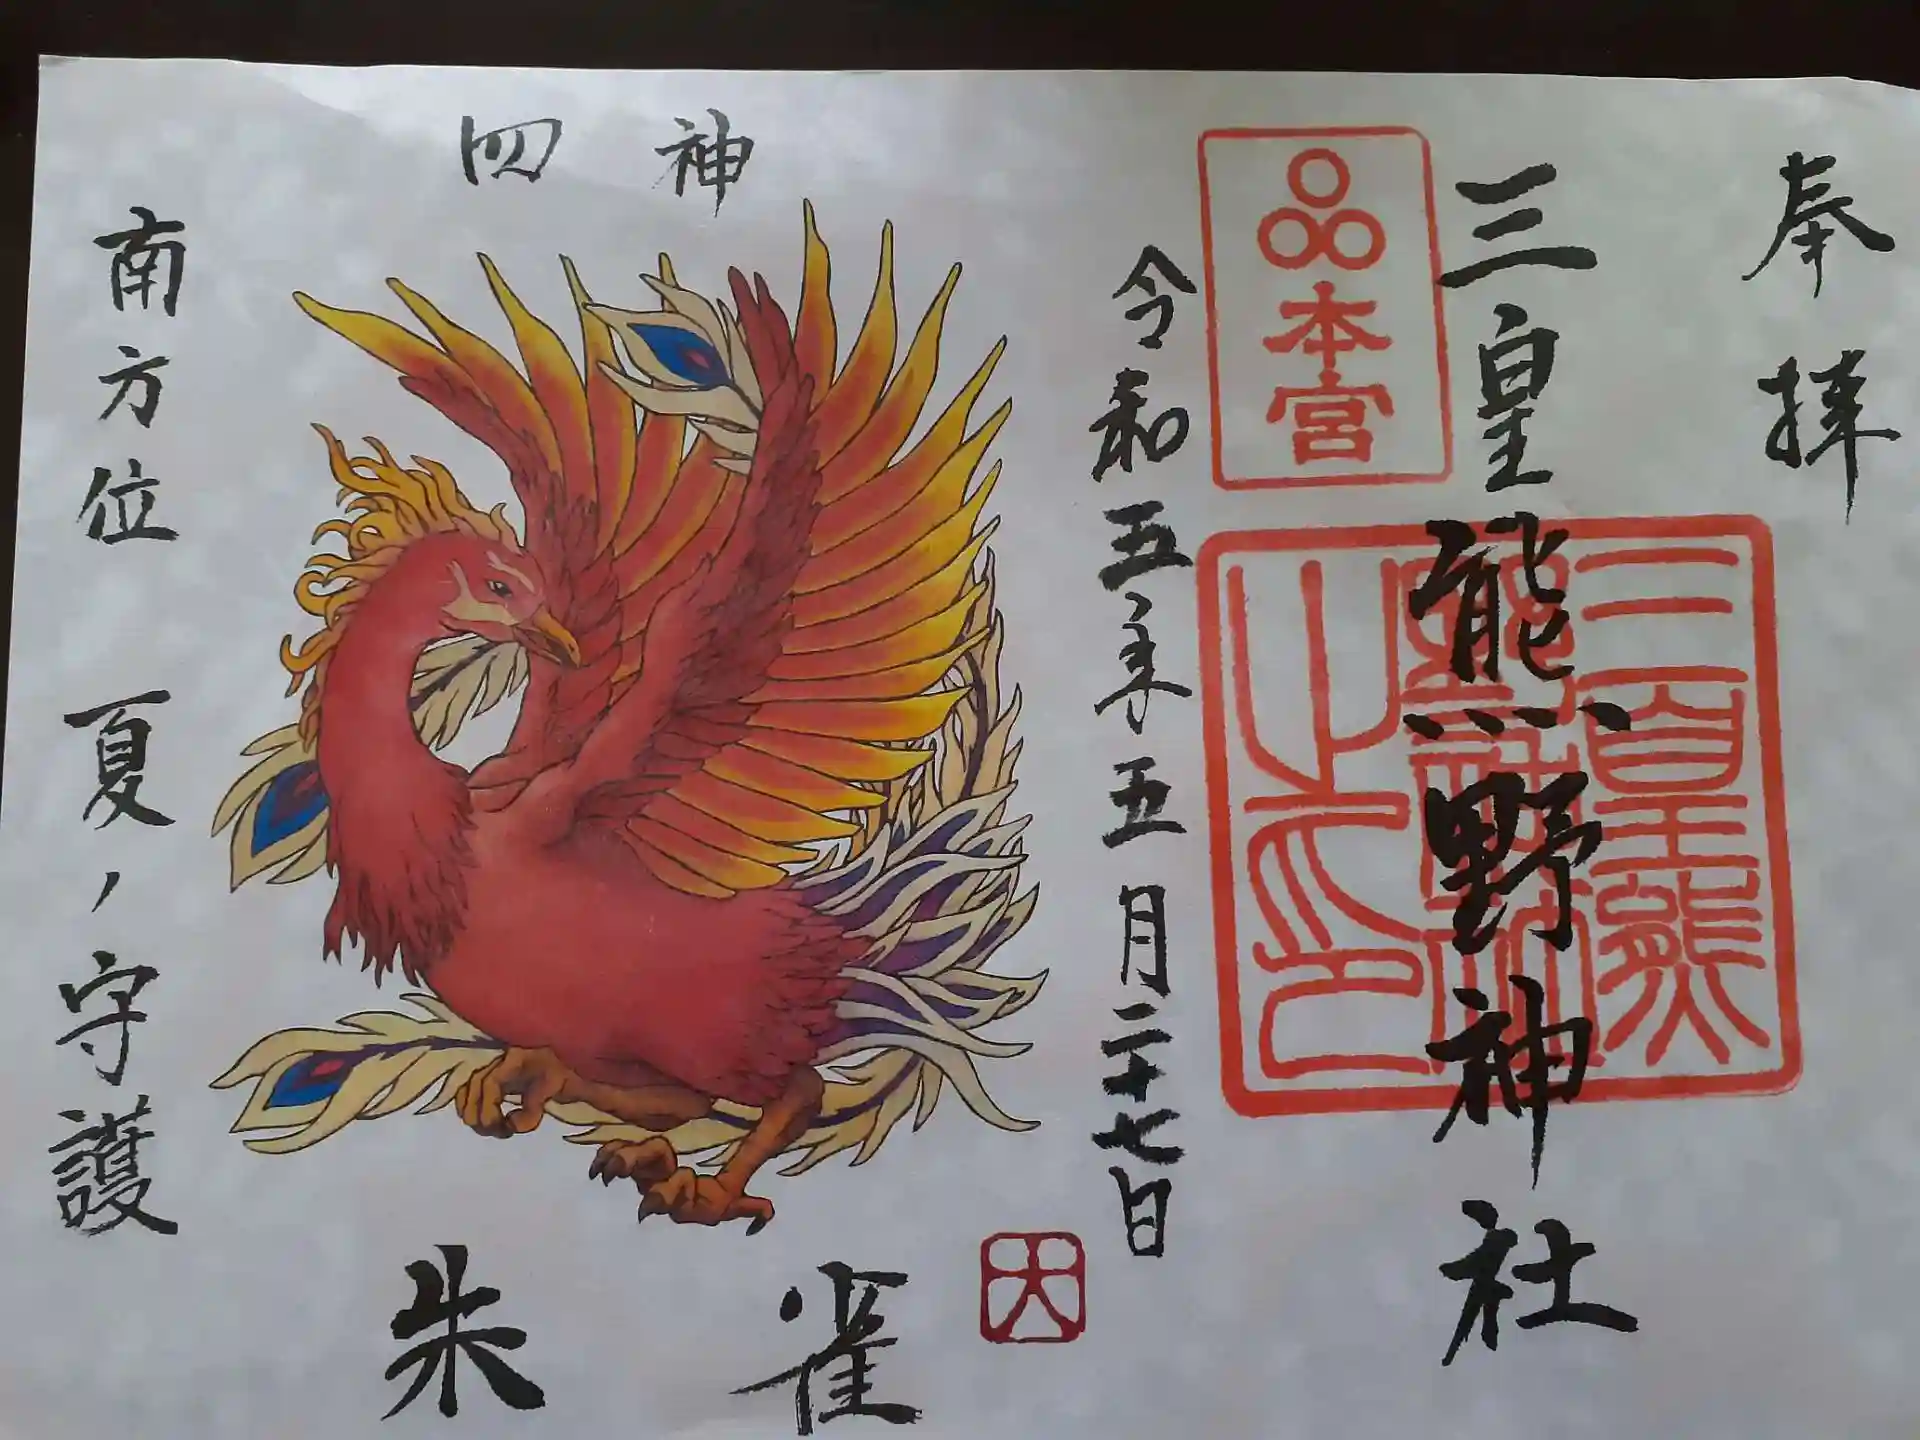 奉拝
三皇熊野神社
本宮
三皇熊野神社之印
令和五年五月二十七日
四神
朱雀
南方位 夏ノ守護